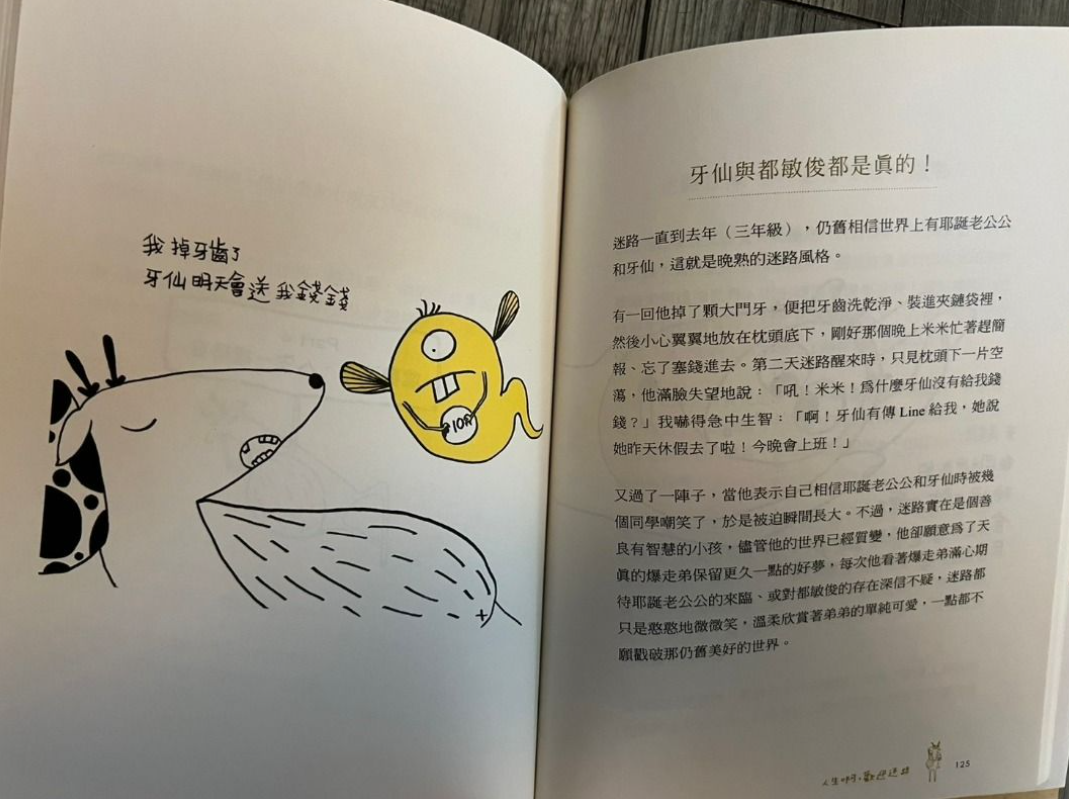 我掉牙齒了
牙仙明天會送我錢錢
10元
牙仙與都敏俊都是眞的！
迷路一直到去年（三年級），仍舊相信世界上有耶誕老公公
和牙仙，這就是晚熟的迷路風格。
有一回他掉了顆大門牙，便把牙齒洗乾淨、裝進夾鏈袋裡，
然後小心翼翼地放在枕頭底下，剛好那個晚上米米忙著趕簡
報、忘了塞錢進去。第二天迷路醒來時，只見枕頭下一片空
蕩，他滿臉失望地說：「吼！米米！爲什麼牙仙沒有給我錢
錢？」我嚇得急中生智：「啊！牙仙有傳 Line 給我，她說
她昨天休假去了啦！今晚會上班！」
又過了一陣子，當他表示自己相信耶誕老公公和牙仙時被幾
個同學嘲笑了，於是被迫瞬間長大。不過，迷路實在是個善
良有智慧的小孩，儘管他的世界已經質變，他卻願意爲了天
眞的爆走弟保留更久一點的好夢，每次他看著爆走弟滿心期
待耶誕老公公的來臨、或對都敏俊的存在深信不疑，迷路都
只是憨憨地微微笑，溫柔欣賞著弟弟的單純可愛，一點都不
願戳破那仍舊美好的世界。
人生啊，歡迎迷路
125